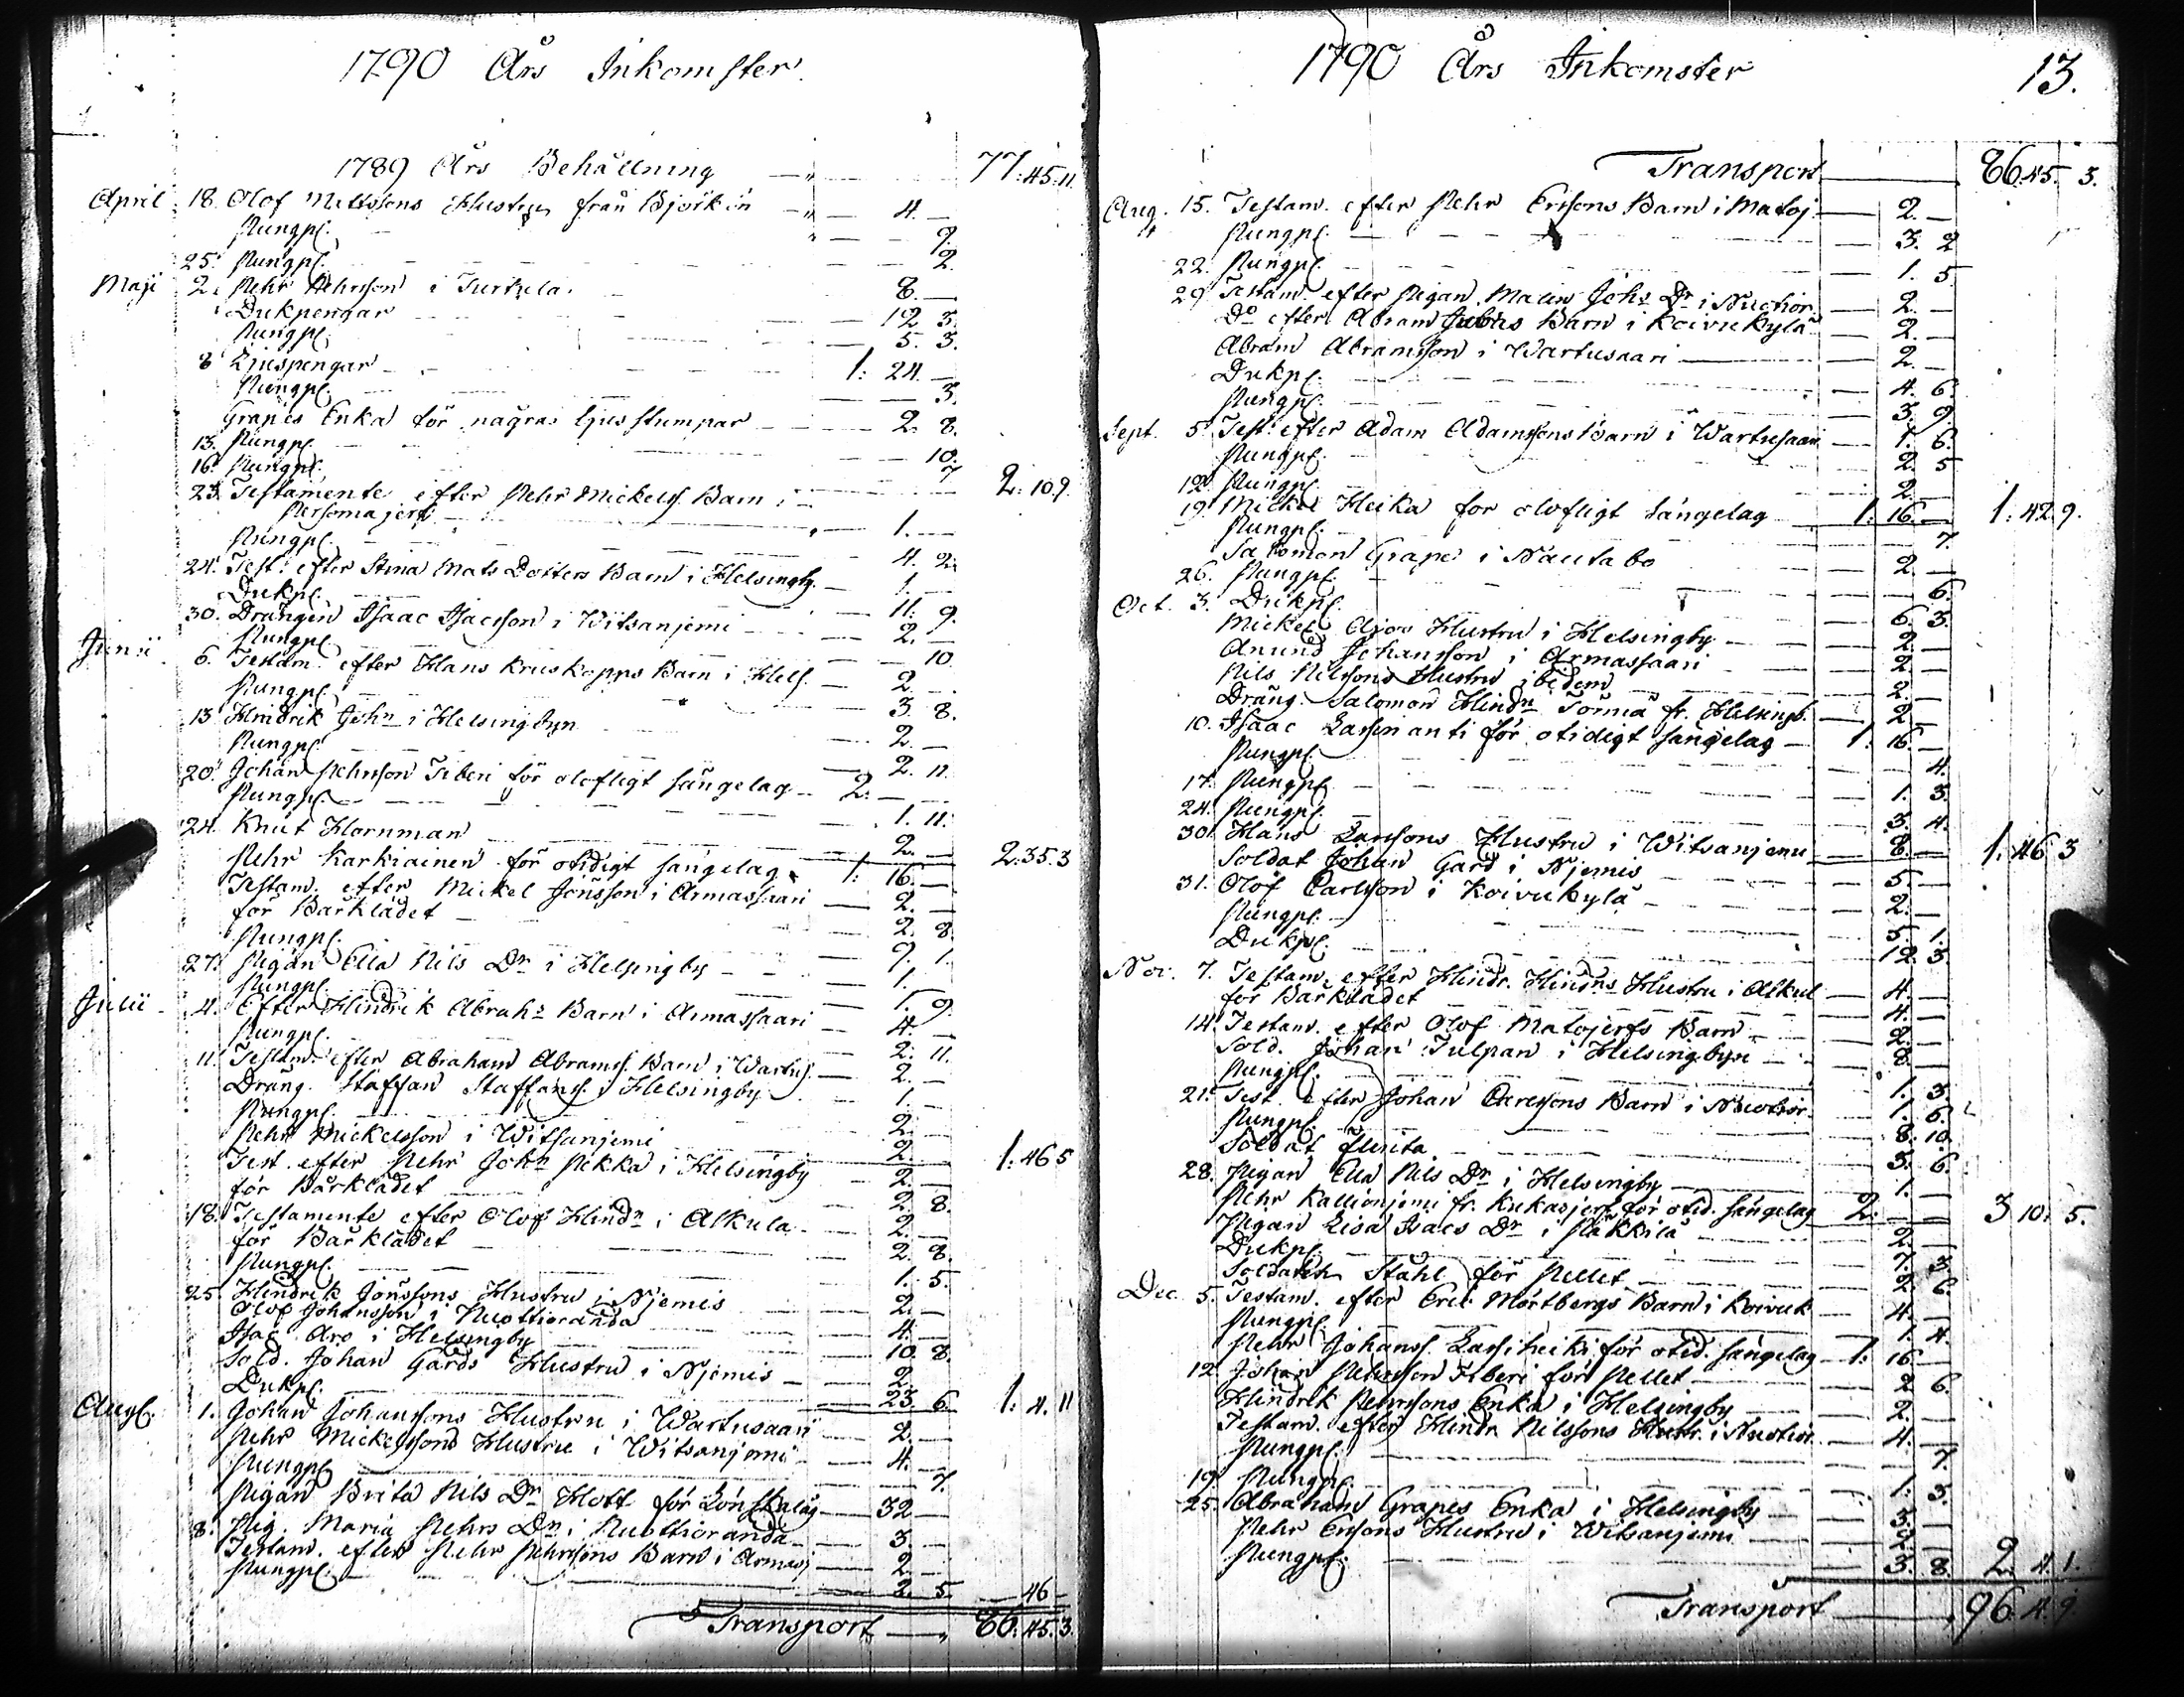 1790 Års Inkomster.
1789 Års Behållning 77:45.11.
April 18. Olof Mattssons Hustru från Björkön 4.—
Pungp. 9.
25. Pungp. 2.
Maji 2. Pehr Pehrsson i Turtula. 8.—
Dukpengar 12. 3.
Pungp. 5. 3.
8 Ljuspengar 1: 24.—
Pungp. 3.
Grapes Enka för några ljusstumpar 2. 8.
13. Pungp. 10.
16. Pungp. 7 2:10.9.
23. Testamente efter Pehr Mickels. Barn i
Persomajerfi 1.—
Pungp. 4. 2.
24. Test. efter Stina Mats Dotters Barn i Helsingby. 1.—
Dukp. 11. 9.
30. Drängen Isaac Isacsson i Witsanjemi 2.—
Pungp. 10.
Junii 6. Testam. efter Hans Kruskopps Barn i Hels. 2.—
Pungp. 3. 8.
13. Hindrik John i Helsingbyn 2.—
Pungp. 2. 11.
20. Johan Pehrsson Tiberi för olofligt sängelag 2.—
Pungp. 1. 11.
24. Knut Hornman 2.— 2:35.3
Pehr Karkiainen för otidigt sängelag 1: 16.—
Testam. efter Mickel Jönsson i Armassaari 2.—
för Bårklädet 2. 8.
Pungp. 9. 1.
27. Pigan Ella Nils Dr i Helsingby 1.
Pungp. 1. 9.
Julii 4. Efter Hindrik Abrahs Barn i Armassaari 4.—
Pungp. 2. 11.
11. Testam. efter Abraham Abrams. Barn i Wartus. 2.—
Dräng. Staffan Staffans. i Helsingby 1.—
Pungp. 2.
Pehr Mickelsson i Witsanjemi 2.— 1:46 5
Test. efter Pehr Johns Pekka i Helsingby 2.—
för Bårklädet 2. 8.
18. Testamente efter Olof Hindr i Alkula 2.—
för Bårklädet 2. 8.
Pungp. 1. 5.
25. Hindrik Jönssons Hustru i Njemis 2.—
Olof Johansson i Nuottioranda 4.—
Isac Aro i Helsingby 10. 8.
Sold. Johan Gards Hustru i Njemis 2.
Dukp. 23. 6. 1: 4. 11
Aug. 1. Johan Johanssons Hustru i Wartusaari 2.—
Pehr Mickelssons Hustru i Witsanjemi 4.—
Pungp. 7.
Pigan Brita Nils Dr Hott för Lönskaläg 32—
8. Pig. Maria Pehrs Dr i Nuottioranda 3.—
Testam. efter Pehr Pehrssons Barn i Armasj 2.—
Pungp. 2. 5. —46—
Transport 86:45.3.
1790 Års Inkomster 13.
Transport 86:45. 3.
Aug. 15. Testam. efter Pehr Ersons Barn i Matoj 2.—
Pungp. 3. 2
22. Pungp. 1. 5
29 Testam. efter Pigan Malin Johs Dr i Nuotior. 2.—
Do efter Abram Barn i Koivukylä 2.—
Abram Abramsson i Wartusaari 2.—
Dukp. 4. 6.
Pungp. 3. 9.
Sept. 5. Test. efter Adam Adamssons Barn i Wartusaari 1. 6.
Pungp. 2. 5
12. Pungp. 2.—
19. Mickel Heika för olofligt sängelag 1: 16.— 1:42 9.
Pungp. 7.
Salomon Grape i Nautabo 2.—
26. Pungp. 6.
Oct. 3. Dukp. 6. 3.
Mickel Aros Hustru i Helsingby 2.—
Anund Johansson i Armassaari 2.—
Nils Nilssons Hustru ibidem 2.—
Dräng Salomon Hindr Törmä fr. Helsingb. 2.—
10. Isaac Lassinanti för otidigt sängelag 1: 16.—
Pungp. 4.
17. Pungp. 1. 3.
24. Pungp. 3. 4.
30. Hans Larssons Hustru i Witsanjemi 8.— 1:46 3
Soldat Johan Gard i Njemis 5.—
31. Olof Carlsson i Koivukylä 2.—
Pungp. 5. 1.
Dukp. 12. 3.
Nov. 7. Testam. efter Hindr. Hindrs Hustru i Alkul 4.—
för Bårklädet 4.—
14. Testam. efter Olof Matojerfs Barn 2.—
Sold. Johan Tulpan i Helsingbyn 8.—
Pungp. 1. 3.
21. Test. efter Johan Carlssons Barn i Nuotior. 1. 6.
Pungp. 8. 10.
Soldat Flinta 3. 6.
28. Pigan Ella Nils Dr i Helsingby 1.—
Pehr Kallionjemi fr. Kukasjerf. för otid. sängelag 2.— 3 10. 5.
Pigan Lisa Isacs Dr i Päkkilä 2.—
Dukp. 7. 3.
Soldaten Stahl för Pellet 2. 6.
Dec. 5. Testam. efter Eric Mörtbergs Barn i Koivuk 4.—
Pungp. 1. 4.
Pehr Johans. Lassiheiki för otid. sängelag 1: 16.—
12. Johan Pehrsson Tiberi för Pellet 2 6.
Hindrik Pehrssons Enka i Helsingby 2.—
Testam. efter Hindr Nilssons Hustr. i Nuotior 4.—
Pungp. 7.
19. Pungp. 1. 3.
25. Abraham Grapes Enka i Helsingby 3.—
Pehr Ersons Hustru i Witsanjemi 2.—
Pungp. 3. 8. 2. 4. 1.
Transport 96. 4. 9.